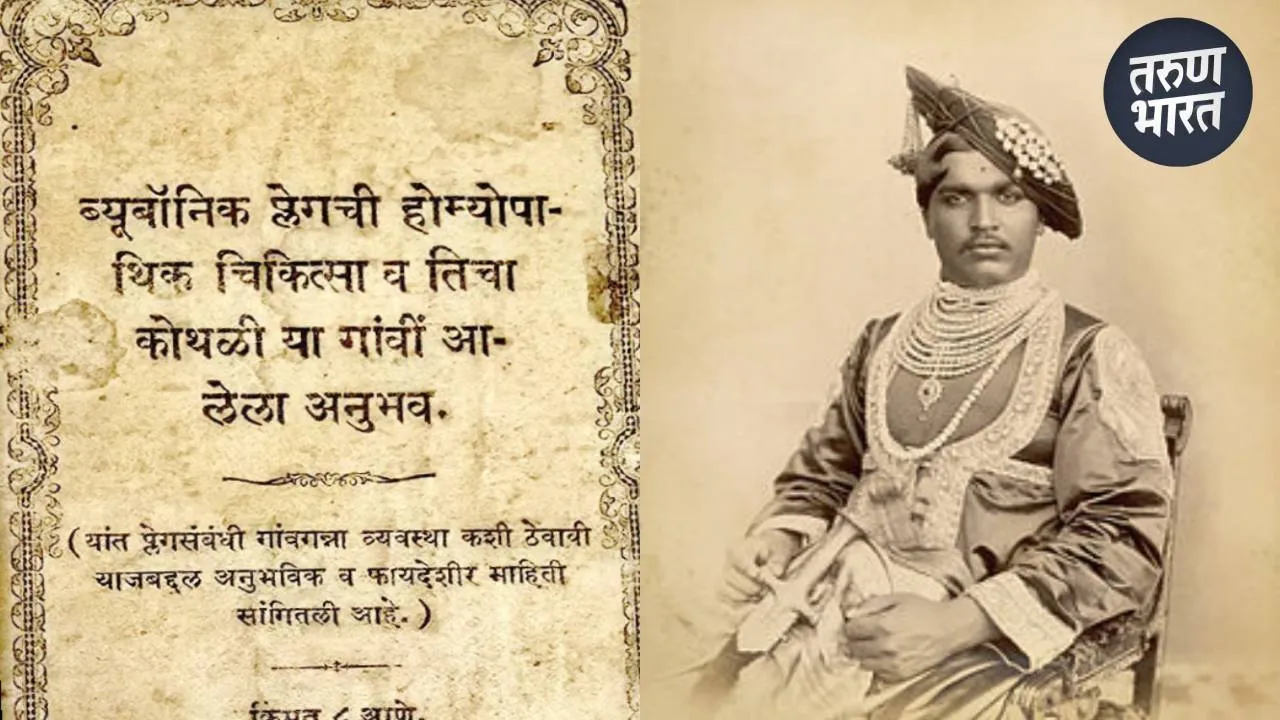 ब्यूबॉनिक प्लेगची होम्योपा-
थिक चिकित्सा व तिचा
कोथळी या गांवीं आ-
लेला अनुभव.
(यांत प्लेगसंबंधी गांवगन्ना व्यवस्था कशी ठेवावी
याजबद्दल अनुभविक व फायदेशीर माहिती
सांगितली आहे.)
किंमत ८ आणे.
तरुण
भारत